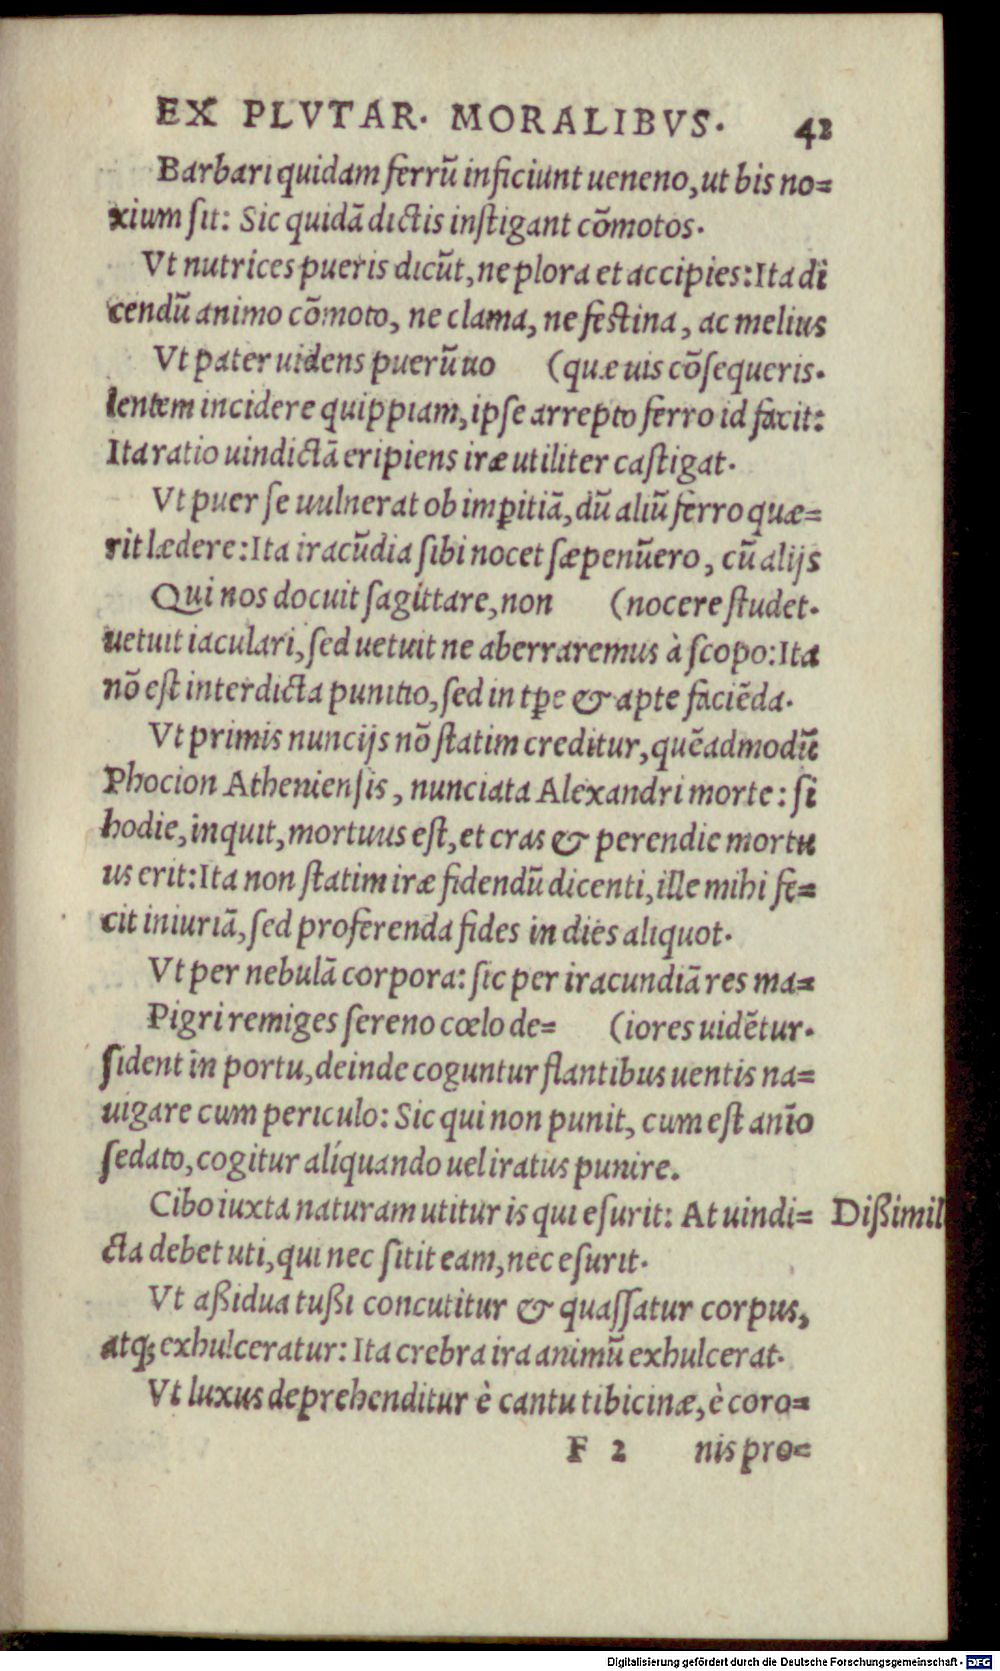 EX PLVTAR. MORALIBVS. 42
Barbari quidam ferrū inficiunt ueneno, ut bis no=
xium ſit: Sic quidā dictis inſtigant cōmotos.
Vt nutrices pueris dicūt, ne plora et accipies: Ita di
cendū animo cōmoto, ne clama, ne feſtina, ac melius
Vt pater uidens puerū uo (quæ uis cōſequeris.
lentem incidere quippiam, ipſe arrepto ferro id facit:
Ita ratio uindictā eripiens iræ utiliter caſtigat.
Vt puer ſe uulnerat ob imꝑitiā, dū aliū ferro quæ=
rit lædere: Ita iracūdia ſibi nocet ſæpenūero, cū alijs
Qui nos docuit ſagittare, non (nocere ſtudet.
uetuit iaculari, ſed uetuit ne aberraremus à ſcopo: Ita
nō eſt interdicta punitio, ſed in tꝑe & apte faciēda.
Vt primis nuncijs nō ſtatim creditur, quēadmodū
Phocion Athenienſis, nunciata Alexandri morte: ſi
hodie, inquit, mortuus eſt, et cras & perendie mortu
us erit: Ita non ſtatim iræ fidendū dicenti, ille mihi fe=
cit iniuriā, ſed proferenda fides in dies aliquot.
Vt per nebulā corpora: ſic per iracundiā res ma=
Pigri remiges ſereno cœlo de= (iores uidētur.
ſident in portu, deinde coguntur flantibus uentis na=
uigare cum periculo: Sic qui non punit, cum eſt anīo
ſedato, cogitur aliquando uel iratus punire.
Cibo iuxta naturam utitur is qui eſurit: At uindi= Dißimil
cta debet uti, qui nec ſitit eam, nec eſurit.
Vt aßidua tußi concutitur & quaſſatur corpus,
atq; exhulceratur: Ita crebra ira animū exhulcerat.
Vt luxus deprehenditur è cantu tibicinæ, è coro=
F 2 nis pro=
Digitalisierung gefördert durch die Deutsche Forschungsgemeinschaft - DFG